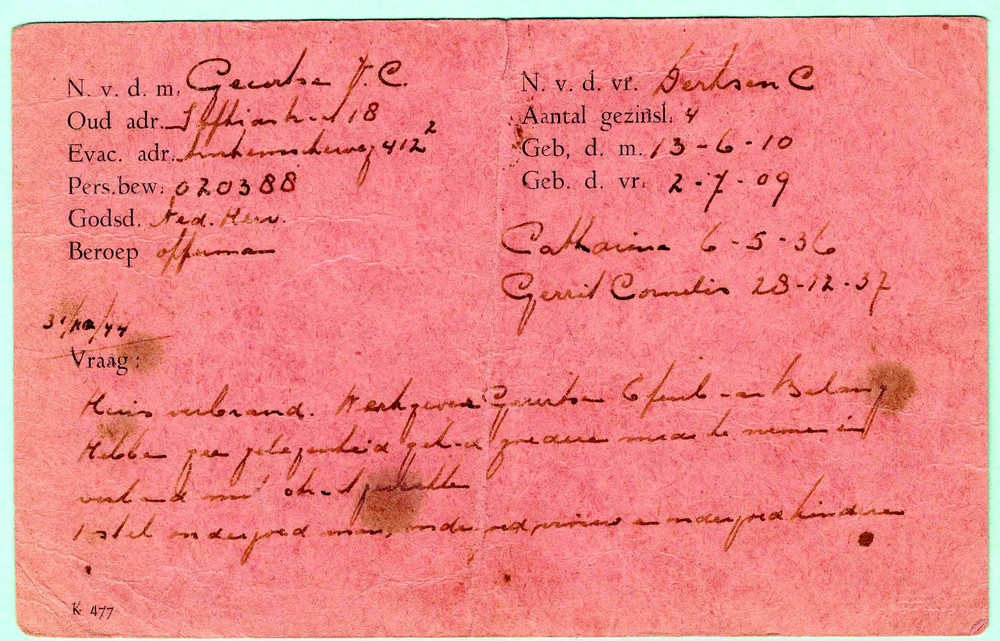 N. v. d. m. Geurtse J. C.
Oud adr. 18
Evac. adr. Arnhemscheweg 412²
Pers.bew. 020388
Godsd. Ned. Herv.
Beroep opperman
N. v. d. vr. Derksen C
Aantal gezinsl. 4
Geb. d. m. 13-6-10
Geb. d. vr. 2-7-09
Catharina 6-5-36
Gerrit Cornelis 28-12-37
44
Vraag:
Huis verbrand. Werkgever Geurtse
Hebben geen gelegenheid gehad goederen mede te nemen in
verband met
1 stel ondergoed man, ondergoed vrouw en ondergoed kinderen
K 477